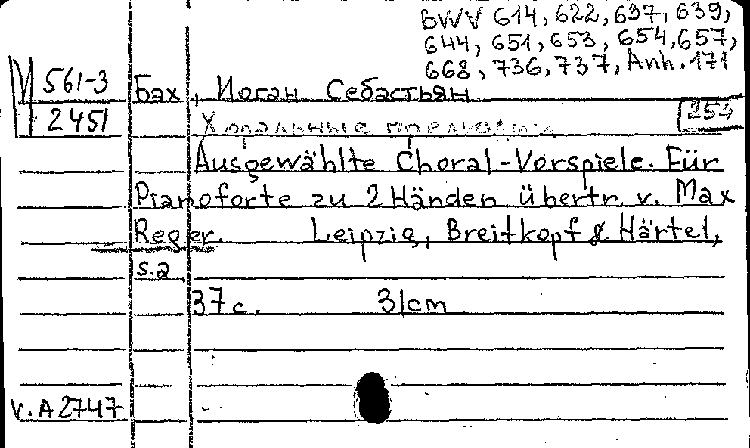 BWV 614, 622, 637, 639,
644, 651, 653, 654, 657,
668, 736, 737, Anh. 171
M 561-3
2451
Бах, Иоган Себастьян
Хоральные прелюдии
254
Ausgewählte Choral-Vorspiele. Für
Pianoforte zu 2 Händen übertr. v. Max
Reger. Leipzig, Breitkopf & Härtel,
s.a.
37 c. 31cm
v. A 2747